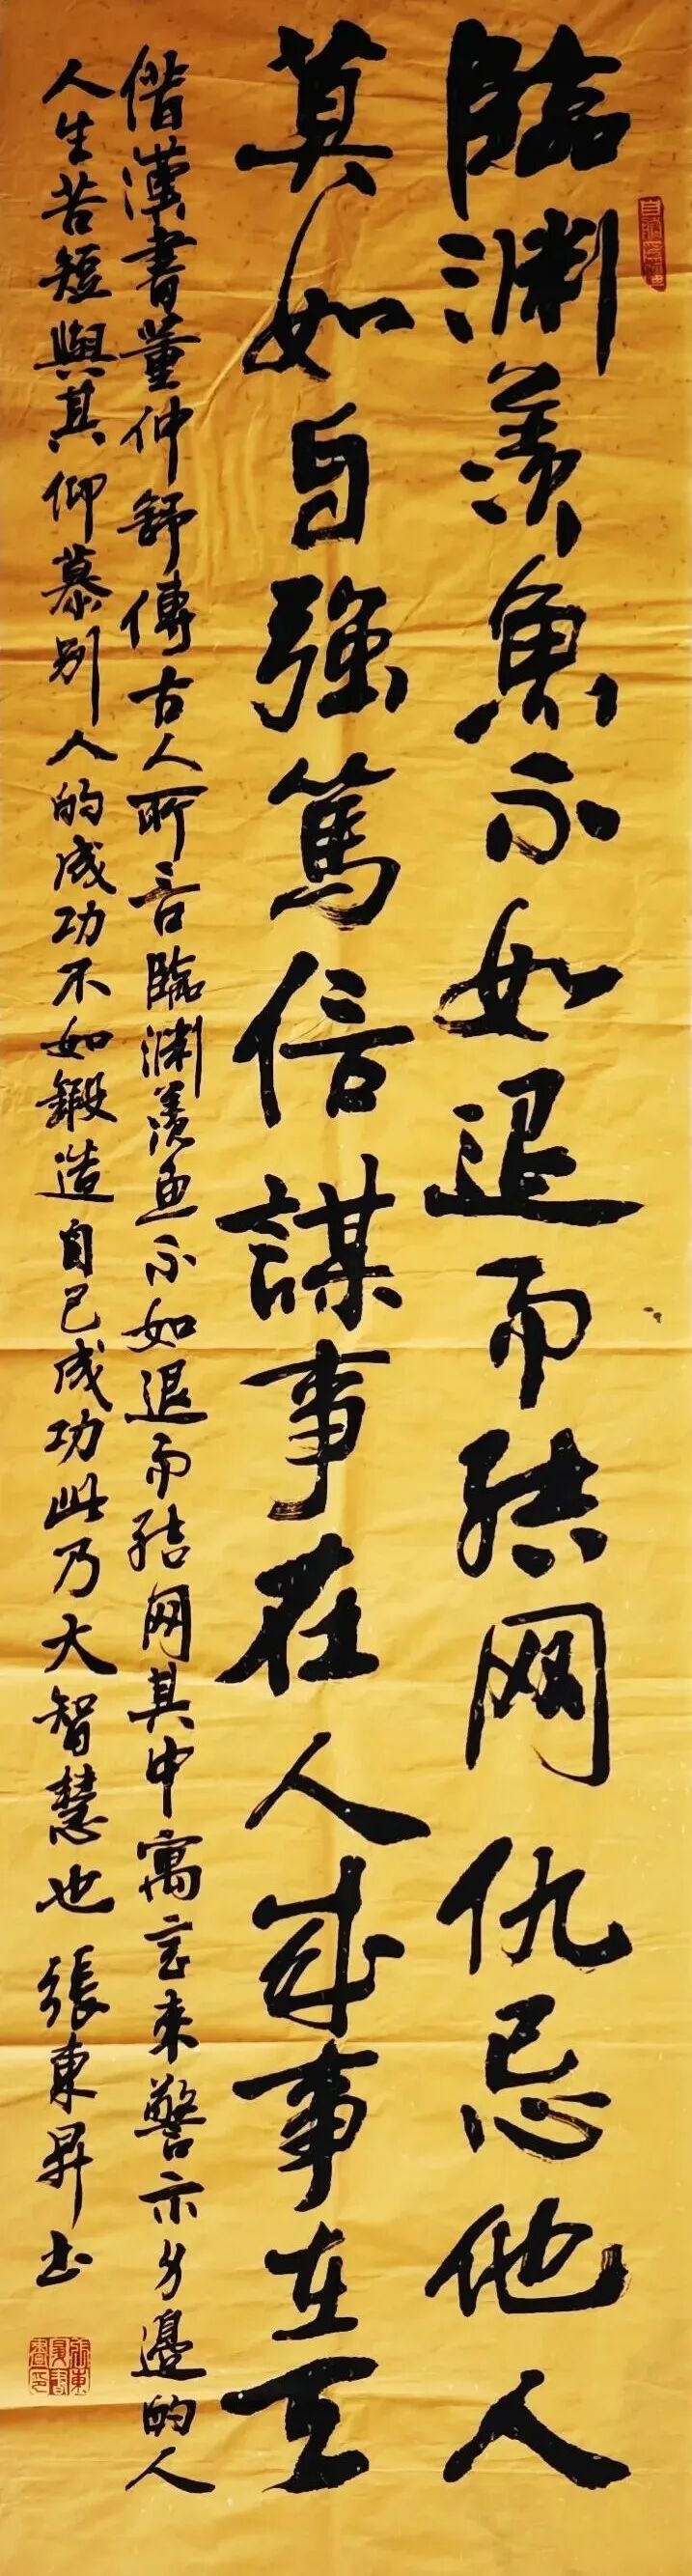 臨渊羨魚不如退而结网仇忌他人
莫如自強篤信謀事在人成事在天
偕漢書董仲舒傳古人所言臨渊羨魚不如退而结网其中寓言来警示身邊的人
人生苦短與其仰慕别人的成功不如鍛造自己成功此乃大智慧也 張東昇书